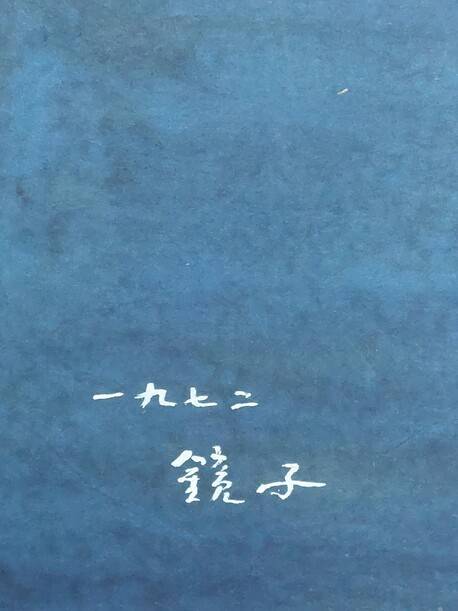 一九七二
鏡子